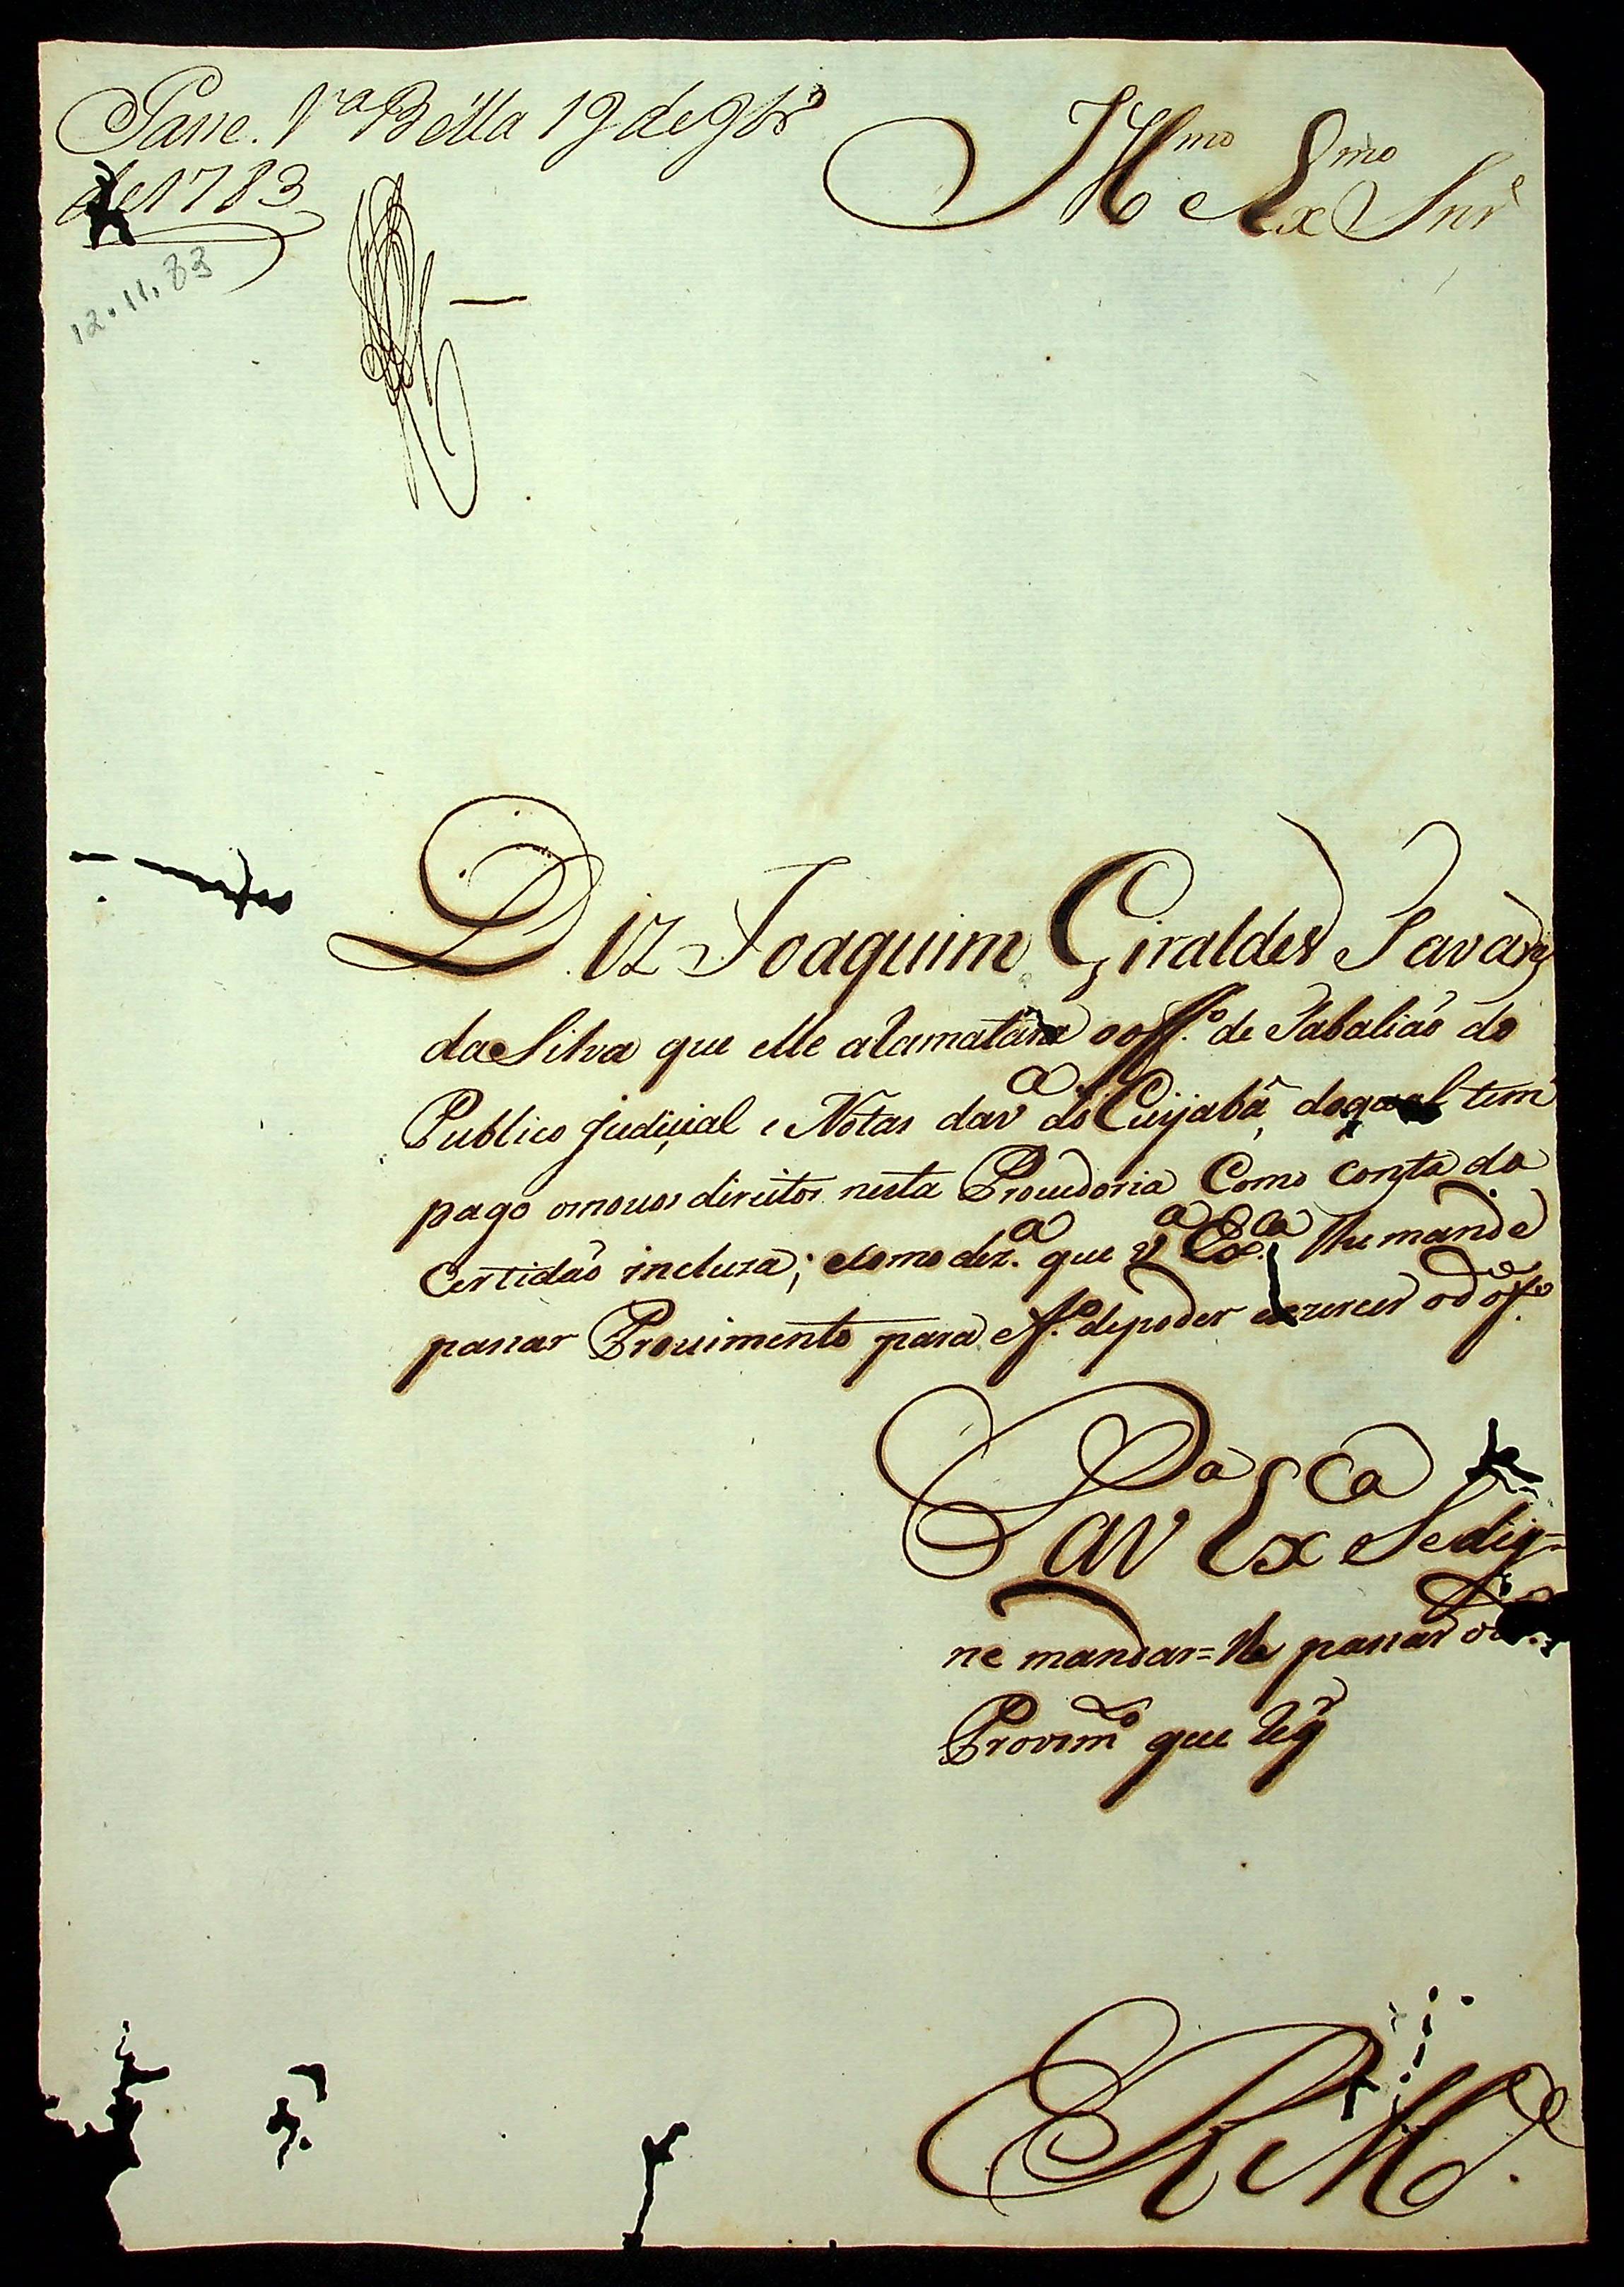 Passe. V.ª Bella 19 de 9br.º
de 1783
12.11.83
Ill.mo e Ex.mo Snr.
Diz Joaquim Giraldes Tavares
da Silva que elle aramatára o off.º de Tabalião do
Publico judicial e Notas da v.ª do Cuyabá, do qual tem
pago os novos direitos nesta Provedoria Como consta da
Certidão incluza; e como dez.ª que V.ª Ex.cia lhe mande
passar Provimento para eff.º de poder exzercer o d.º off.º
P. a V.ª Ex.ca Se dig-
ne mandar=lhe passar o
Provim.to que req.r
E R M.ce